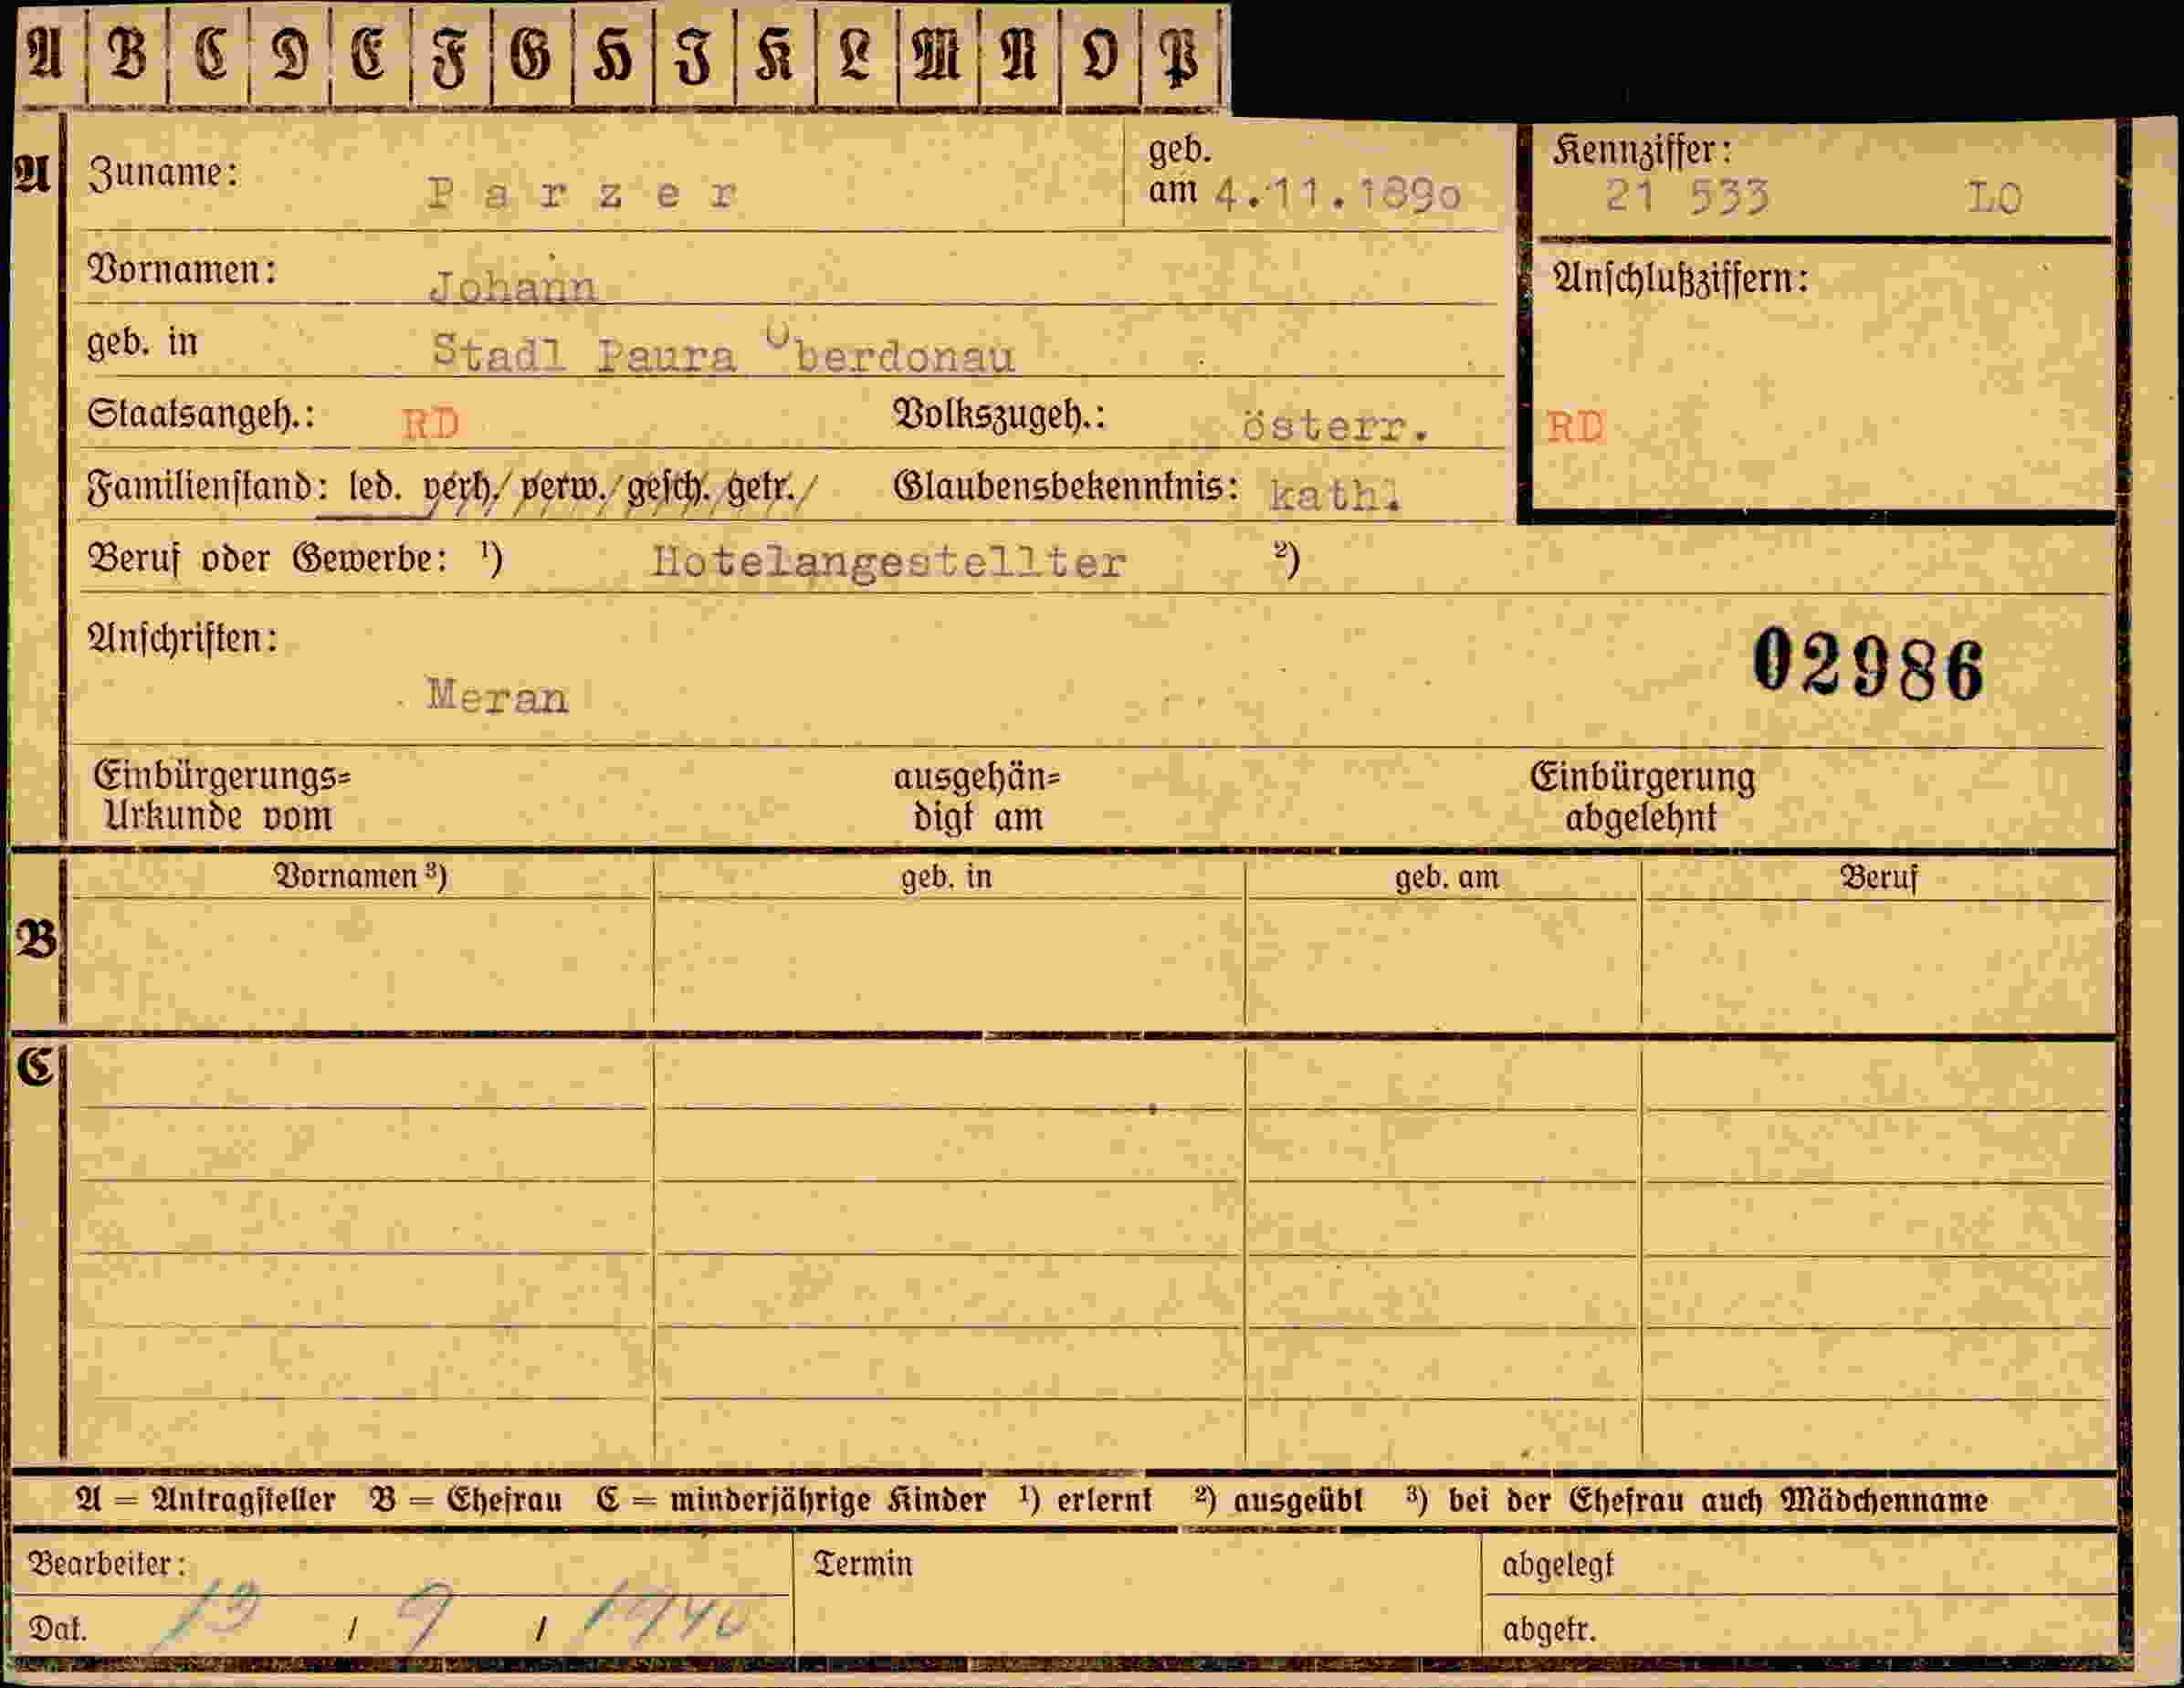 A B C D E F G H J K L M N O P
A Zuname: Parzer geb. am 4.11.1890 Kennziffer: 21 533 LO
Vornamen: Johann Anschlußziffern:
geb. in Stadl Paura Oberdonau
Staatsangeh.: RD Volkszugeh.: österr. RD
Familienstand: led. verh./verw./gesch./getr./ Glaubensbekenntnis: kath.
Beruf oder Gewerbe: ¹) Hotelangestellter ²)
Anschriften: 02986
Meran
Einbürgerungs= ausgehän= Einbürgerung
Urkunde vom digt am abgelehnt
Vornamen ³) geb. in geb. am Beruf
B
C
A = Antragsteller B = Ehefrau C = minderjährige Kinder ¹) erlernt ²) ausgeübt ³) bei der Ehefrau auch Mädchenname
Bearbeiter: Termin abgelegt
Dat. 13 / 9 / 1940 abgetr.